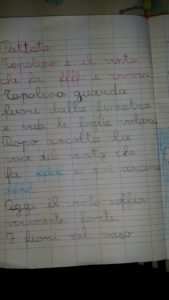 Dettato
Topolino e il vento
che fa ffff e
Topolino guarda
fuori dalla finestra
e vede le foglie volare
Dopo ascolta la
voce del vento che
fa e poi ancora
Oggi il vento soffia
veramente forte.
I fiori nel vaso